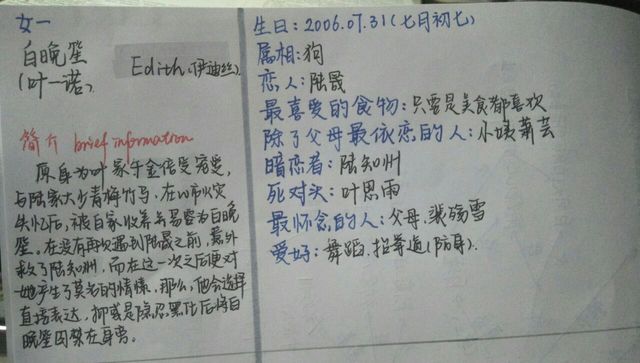 女一
白晚笙
(叶一诺)
Edith(伊迪丝)
简介 brief information
原身为叶家千金倍受宠爱,
与陆家大少青梅竹马,在W市火灾
失忆后,被白家收养并易容为白晚
笙。在没有再次遇到陆晟之前,意外
救了陆知州,而在这一次之后便对
她产生了莫名的情愫,那么,他会选择
直接表达,抑或是隐忍黑化后将白
晚笙囚禁在身旁。
生日:2006.07.31(七月初七)
属相:狗
恋人:陆晟
最喜爱的食物:只要是美食都喜欢
除了父母最依恋的人:小姨萧芸
暗恋者:陆知州
死对头:叶思雨
最怀念的人:父母,裴殇雪
爱好:舞蹈,跆拳道(防身).